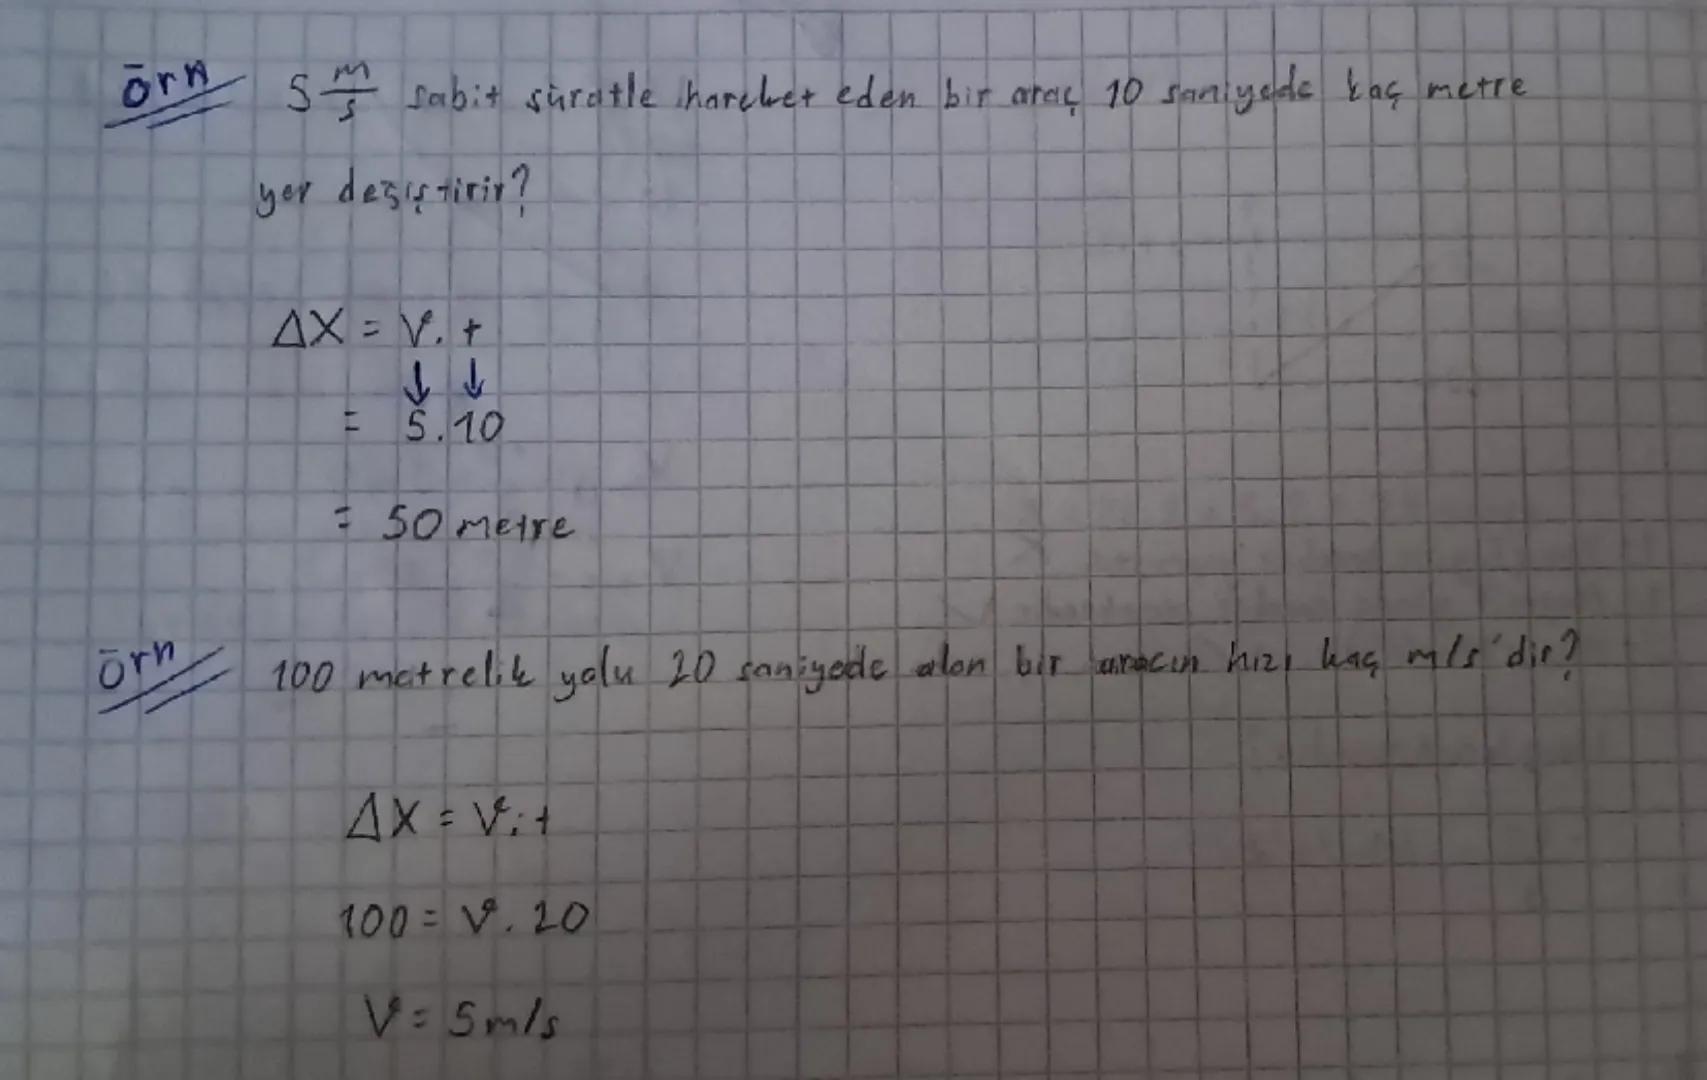 örn 5 m/s sabit süratle hareket eden bir araç 10 saniyede kaç metre
yer değiştirir?
ΔX = V.t
↓ ↓
= 5.10
= 50 metre
örn 100 metrelik yolu 20 saniyede alan bir aracın hızı kaç m/s'dir?
ΔX = V.t
100 = V.20
V = 5m/s